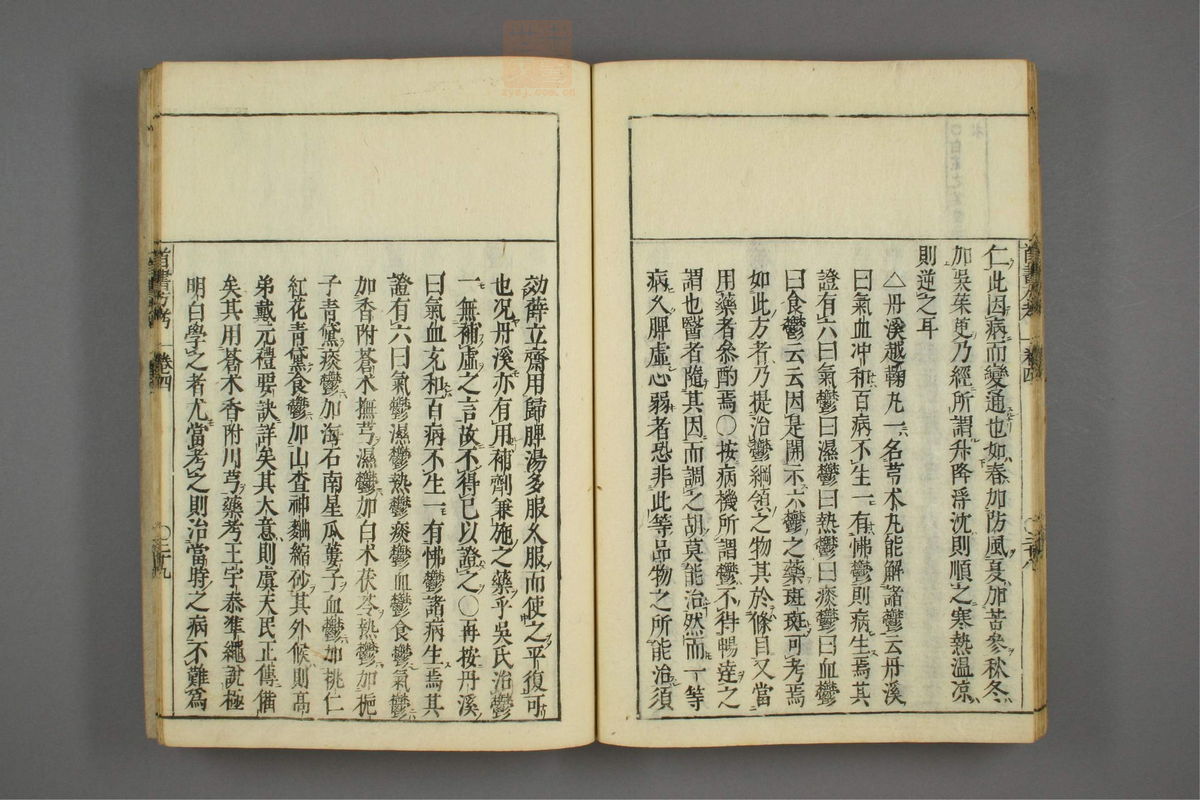 仁此因病而變通也如春加防風夏加苦參秋冬
加吳茱萸乃經所謂升降浮沈則順之寒熱温凉
則逆之耳
△丹溪越鞠丸一名芎术丸能解諸鬱云丹溪
曰氣血冲和百病不生一有怫鬱則病生焉其
證有六曰氣鬱曰濕鬱曰熱鬱曰痰鬱曰血鬱
曰食鬱云云因是開示六鬱之藥班班可考焉
如此方者乃提治鬱綱領之物其於條目又當
用藥者叅酌焉○按病機所謂鬱不得暢達之
謂也醫者隨其因而調之胡莫能治然而一等
病久脾虛心弱者恐非此等品物之所能治須
効薛立齋用歸脾湯多服久服而使之平復可
也况丹溪亦有用補劑兼施之藥乎吳氏治鬱
一無補虛之言故不得已以證之○再按丹溪
曰氣血充和百病不生一有怫鬱諸病生焉其
證有六曰氣鬱濕鬱熱鬱痰鬱血鬱食鬱氣鬱
加香附蒼术撫芎濕鬱加白术茯苓熱鬱加梔
子青黛痰鬱加海石南星瓜蔞子血鬱加桃仁
紅花青黛食鬱加山査神麯縮砂其外候則髙
弟戴元禮要訣詳矣其大意則虞天民正傳備
矣其用蒼术香附川芎藥考王宇泰準繩説極
明白學之者尤當考之則治當時之病不難爲
首書方考
卷四
○二十九
卷四
zysj.com.cn